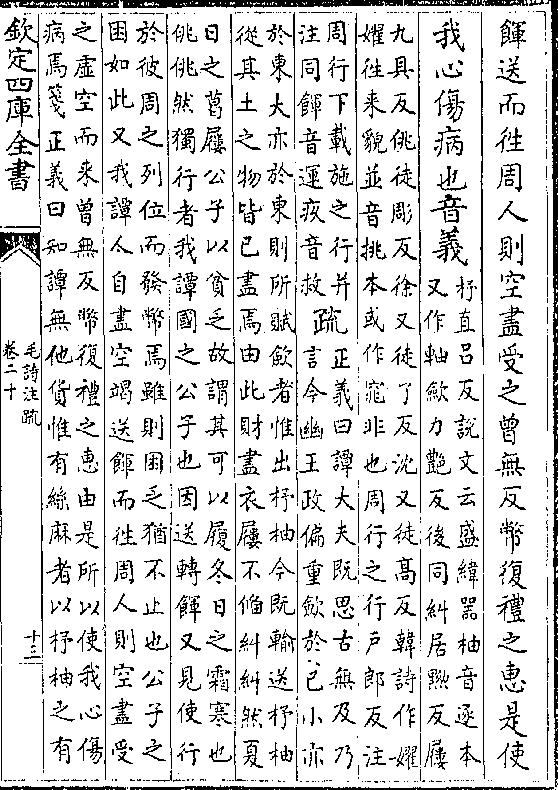 餫送而徃周人則空盡受之曾無反幣復禮之恵是使
我心傷病也音義
杼直吕反說文云盛緯器柚音逐本
又作軸歛力艷反後同糾居黝反屨
九具反佻徒彫反徐又徒了反沈又徒髙反韓詩作嬥
嬥徃来貌並音挑本或作窕非也周行之行户郎反注
周行下載施之行并
注同餫音運疚音救
疏
正義曰譚大夫既思古無及乃
言今幽王政偏重歛於己小亦
於東大亦於東則所賦歛者惟出杼柚今既輸送杼柚
從其土之物皆已盡焉由此財盡衣屨不偹糾糾然夏
日之葛屨公子以貧乏故謂其可以履冬日之霜寒也
佻佻然獨行者我譚國之公子也因送轉餫又見使行
於彼周之列位而發幣焉雖則困乏猶不止也公子之
困如此又我譚人自盡空竭送餫而徃周人則空盡受
之虚空而来曾無反幣復禮之惠由是所以使我心傷
病焉箋正義曰知譚無他貨惟有絲麻者以杼柚之有
欽定四庫全書
毛詩注疏
卷二十
十三